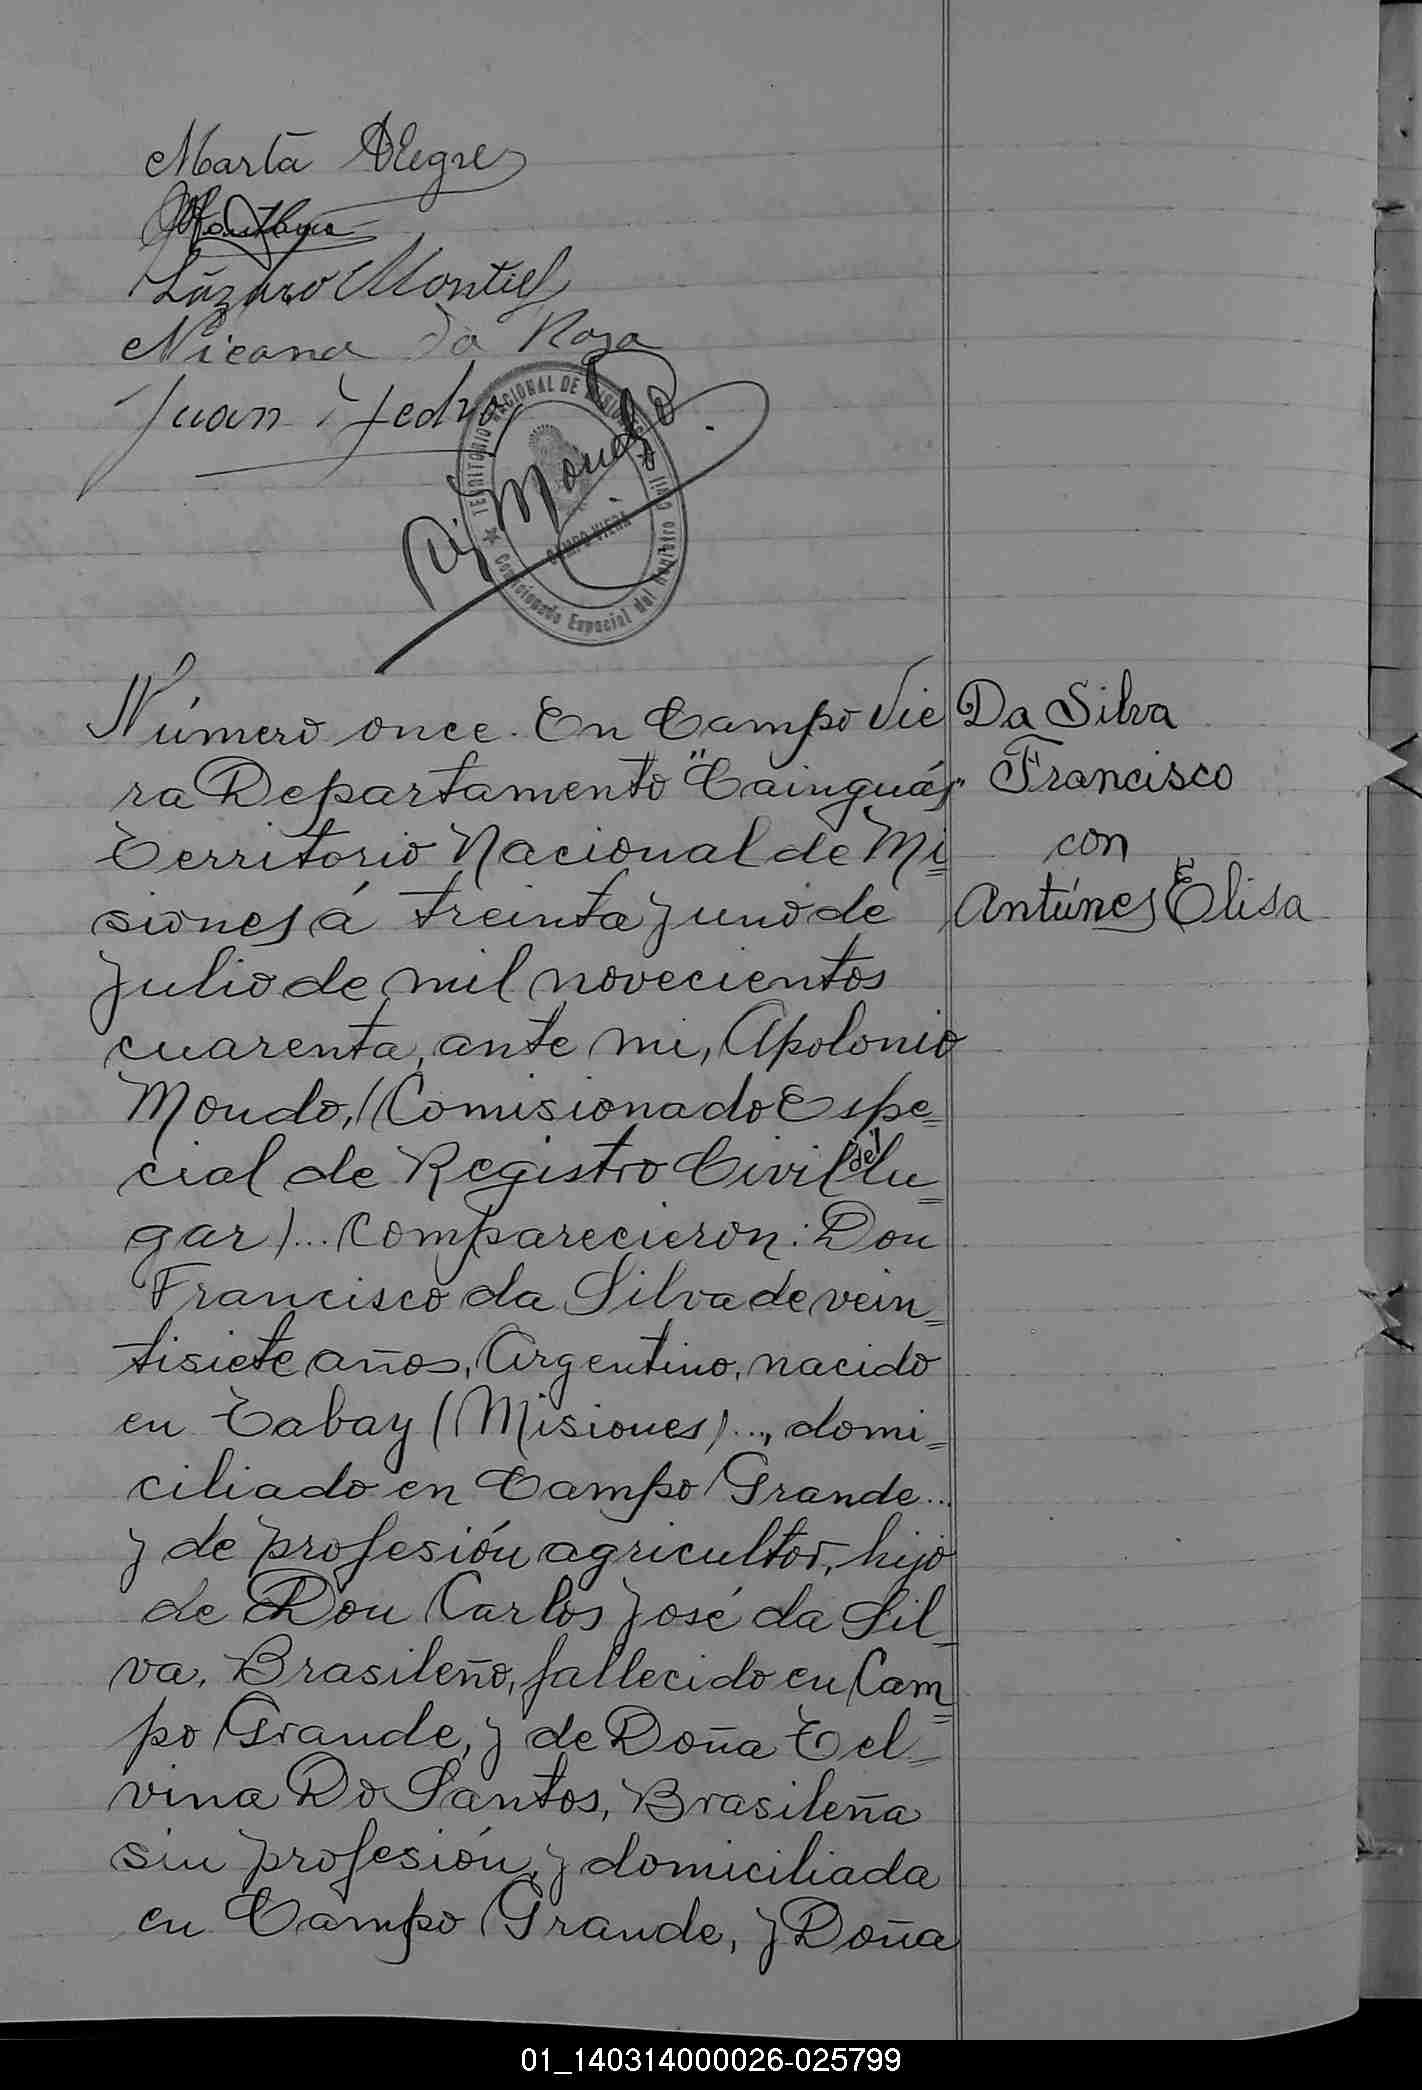 Marta Alegre
Lázaro Montiel
Nicanor Da Rosa
Juan Yedro
TERRITORIO NACIONAL DE MISIONES
Comisionado Especial del Registro Civil
CAMPO VIERA
Ap. Mondo
Número once. En Campo Vie
ra Departamento "Cainguás"
Territorio Nacional de Mi
siones á treinta y uno de
Julio de mil novecientos
cuarenta, ante mi, Apolonio
Mondo, (Comisionado Espe=
cial de Registro Civil del lu=
gar)... Comparecieron: Don
Francisco da Silva de vein=
tisiete años, Argentino, nacido
en Tabay (Misiones)..., domi=
ciliado en Campo Grande...
y de profesión agricultor, hijo
de Don Carlos José da Sil=
va, Brasileño, fallecido en Cam=
po Grande, y de Doña Tel=
vina Do Santos, Brasileña
sin profesión, y domiciliada
en Campo Grande, y Doña
Da Silva
Francisco
con
Antúnes Elisa
01_140314000026-025799